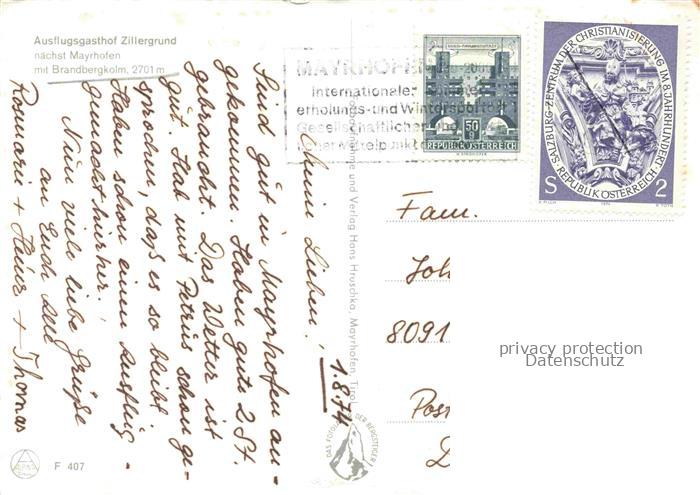 Ausflugsgasthof Zillergrund
nächst Mayrhofen
mit Brandbergkolm, 2701 m
MAYRHOFEN
Internationaler
erholungs- und Wintersport
Gesellschaftlicher
50 g
REPUBLIK ÖSTERREICH
SALZBURG-ZENTRUM DER CHRISTIANISIERUNG IM 8. JAHRHUNDERT
REPUBLIK ÖSTERREICH
S 2
1.8.74
Meine Lieben!
Sind gut in Mayrhofen an-
gekommen. Haben gute 2 St.
gebraucht. Das Wetter ist
gut. Hab mit Petrus schon ge-
sprochen, daß es so bleibt.
Haben schon einen Ausflug
gemacht hierher.
Nun viele liebe Grüße
an Euch alle
Rosmarie + Heinz + Thomas
und Verlag Hans Hruschka, Mayrhofen, Tirol
DAS FOTO DER BERGSTEIGER
Fam.
Joh
8091
Post
D
privacy protection
Datenschutz
F 407